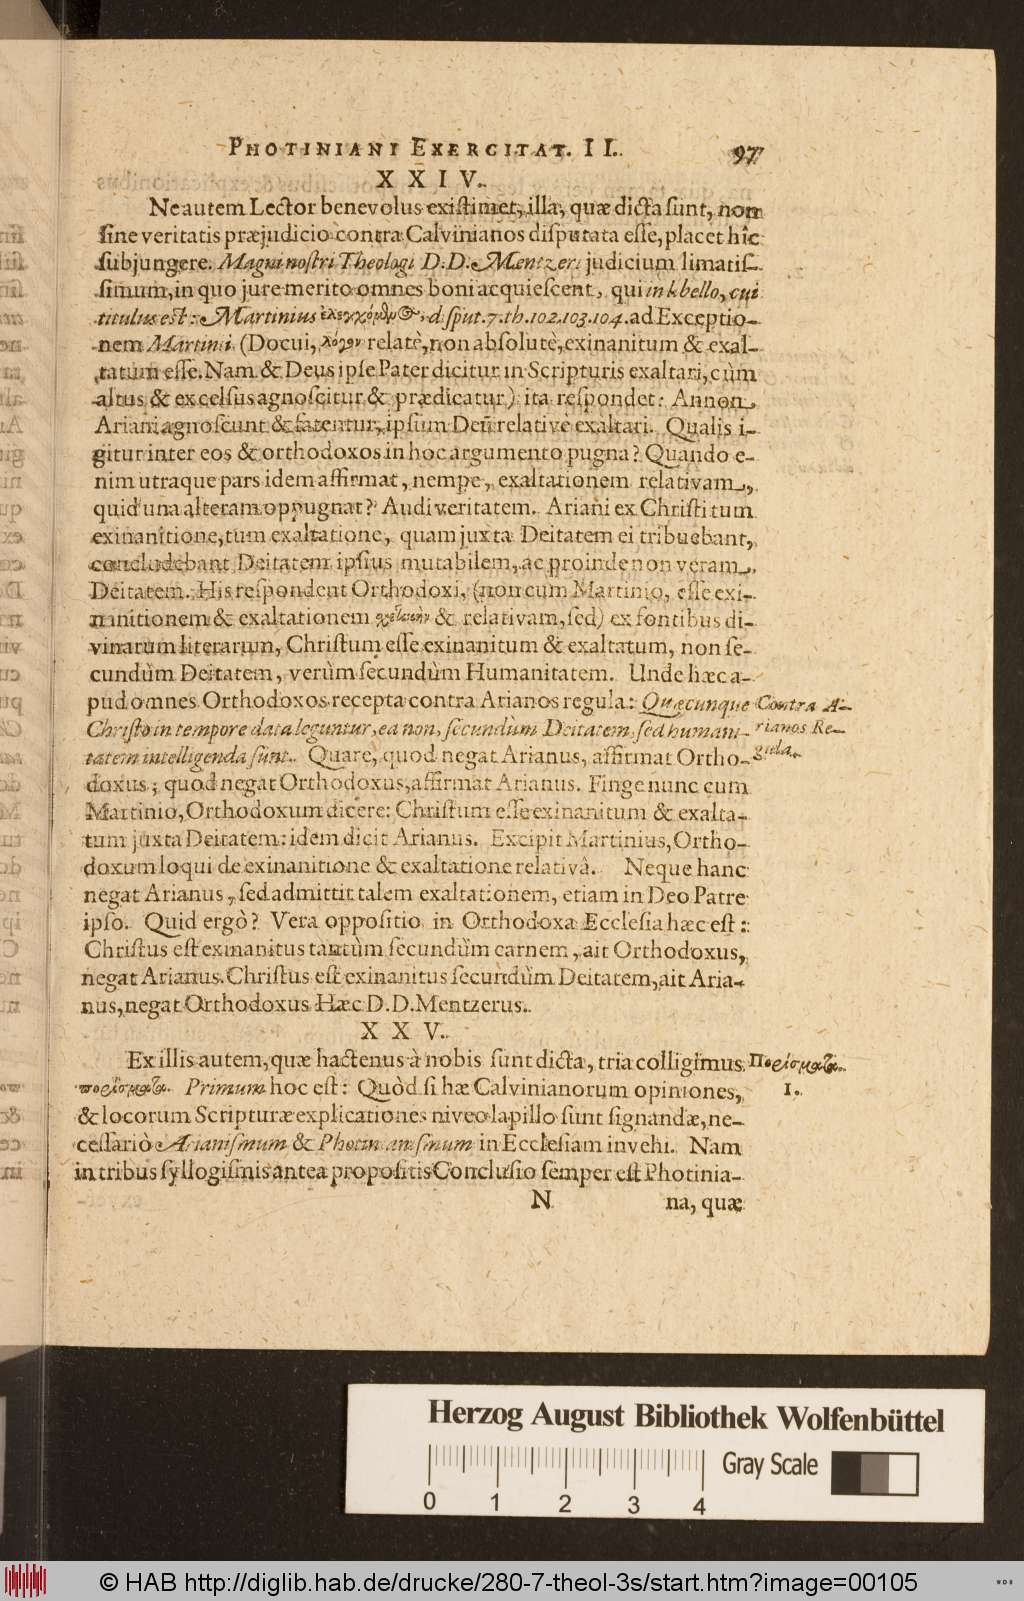 PHOTINIANI EXERCITAT. II. 97
XXIV.
Ne autem Lector benevolus existimet, illa, quæ dicta sunt, non
sine veritatis præjudicio contra Calvinianos disputata esse, placet hîc
subjungere. Magni nostri Theologi D. D. Mentzeri judicium limatis-
simum, in quo jure merito omnes boni acquiescent, qui in libello, cui
titulus est: Martinius disput. 7. th. 102. 103. 104. ad Exceptio-
nem Martinii (Docui, λόγον relatè, non absolutè, exinanitum & exal-
tatum esse. Nam & Deus ipse Pater dicitur in Scripturis exaltari, cùm
altus & excelsus agnoscitur & prædicatur) ita respondet: Annon
Ariani agnoscunt & fatentur, ipsum Deũ relativè exaltari. Qualis i-
gitur inter eos & orthodoxos in hoc argumento pugna? Quando e-
nim utraque pars idem affirmat, nempe, exaltationem relativam,
quid una alteram oppugnat? Audi veritatem. Ariani ex Christi tum
exinanitione, tum exaltatione, quam juxta Deitatem ei tribuebant,
concludebant Deitatem ipsius mutabilem, ac proinde non veram
Deitatem. His respondent Orthodoxi, (non cum Martinio, esse exi-
nanitionem & exaltationem & relativam, sed) ex fontibus di-
vinarum literarum, Christum esse exinanitum & exaltatum, non se-
cundùm Deitatem, verùm secundùm Humanitatem. Unde hæc a-
pud omnes Orthodoxos recepta contra Arianos regula: Quæcunque
Christo in tempore data leguntur, ea non, secundùm Deitatem, sed humani-
tatem intelligenda sunt. Quare, quod negat Arianus, affirmat Ortho-
doxus; quod negat Orthodoxus, affirmat Arianus. Finge nunc cum
Martinio, Orthodoxum dicere: Christum esse exinanitum & exalta-
tum juxta Deitatem: idem dicit Arianus. Excipit Martinius, Ortho-
doxum loqui de exinanitione & exaltatione relativâ. Neque hanc
negat Arianus, sed admittit talem exaltationem, etiam in Deo Patre
ipso. Quid ergò? Vera oppositio in Orthodoxa Ecclesia hæc est:
Christus est exinanitus tantùm secundùm carnem, ait Orthodoxus,
negat Arianus. Christus est exinanitus secundùm Deitatem, ait Aria-
nus, negat Orthodoxus. Hæc D. D. Mentzerus.
Contra A-
rianos Re-
gula.
XXV.
Ex illis autem, quæ hactenus à nobis sunt dicta, tria colligimus
πορίσματα. Primum hoc est: Quòd si hæ Calvinianorum opiniones,
& locorum Scripturæ explicationes niveo lapillo sunt signandæ, ne-
cessariò Arianismum & Photinianismum in Ecclesiam invehi. Nam
in tribus syllogismis antea propositis Conclusio semper est Photinia-
Πορίσματα.
I.
N na, quæ
Herzog August Bibliothek Wolfenbüttel
Gray Scale
0 1 2 3 4
© HAB http://diglib.hab.de/drucke/280-7-theol-3s/start.htm?image=00105